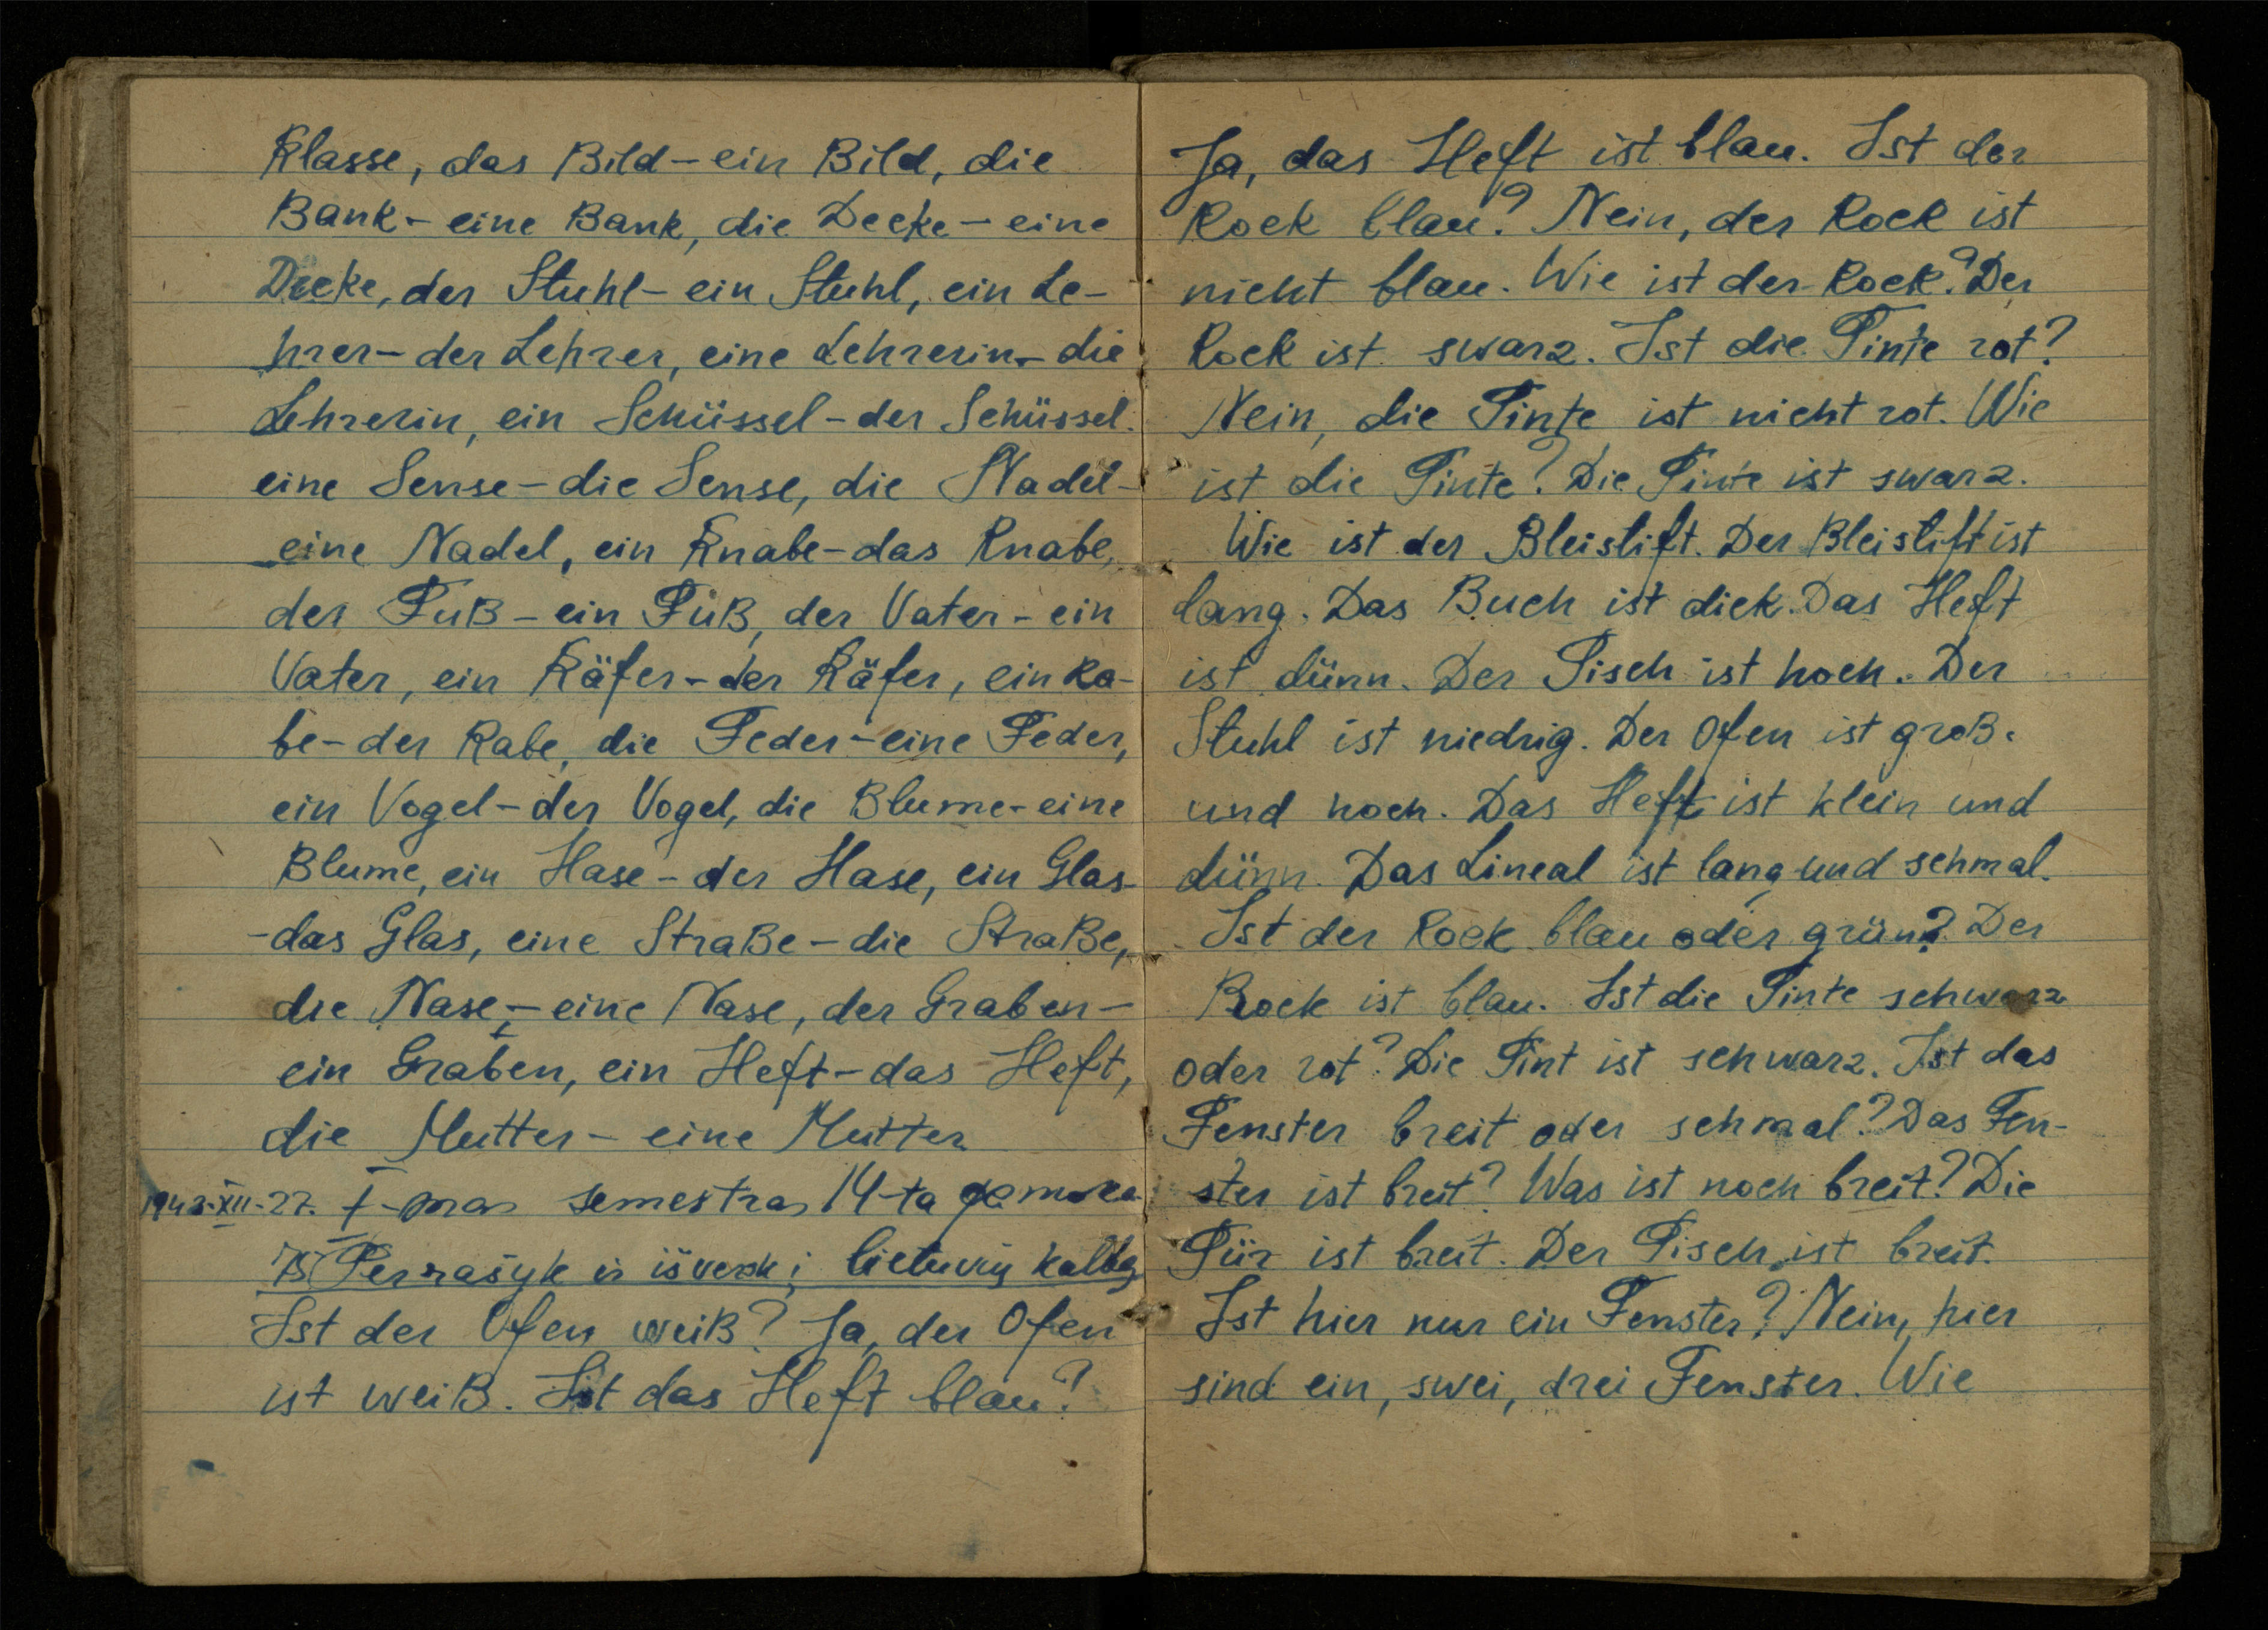 Klasse, das Bild - ein Bild, die
Bank - eine Bank, die Decke - eine
Decke, der Stuhl - ein Stuhl, ein Le-
hrer - der Lehrer, eine Lehrerin - die
Lehrerin, ein Schüssel - der Schüssel.
eine Sense - die Sense, die Nadel -
eine Nadel, ein Knabe - das Knabe,
der Fuß - ein Fuß, der Vater - ein
Vater, ein Käfer - der Käfer, ein Ra-
be - der Rabe, die Feder - eine Feder,
ein Vogel - der Vogel, die Blume - eine
Blume, ein Hase - der Hase, ein Glas -
- das Glas, eine Straße - die Straße,
die Nase - eine Nase, der Graben -
ein Graben, ein Heft - das Heft,
die Mutter - eine Mutter
1943-XII-27. I-mas semestras 14-ta pamoka
Perrašyk ir išversk į lietuvių kalbą
Ist der Ofen weiß? Ja, der Ofen
ist weiß. Ist das Heft blau?
Ja, das Heft ist blau. Ist der
Rock blau? Nein, der Rock ist
nicht blau. Wie ist der Rock? Der
Rock ist swarz. Ist die Tinte rot?
Nein, die Tinte ist nicht rot. Wie
ist die Tinte? Die Tinte ist swarz.
Wie ist der Bleistift. Der Bleistift ist
lang. Das Buch ist dick. Das Heft
ist dünn. Der Tisch ist hoch. Der
Stuhl ist niedrig. Der Ofen ist groß.
und hoch. Das Heft ist klein und
dünn. Das Lineal ist lang und schmal.
Ist der Rock blau oder grün? Der
Rock ist blau. Ist die Tinte schwarz
oder rot? Die Tint ist schwarz. Ist das
Fenster breit oder schmal? Das Fen-
ster ist breit? Was ist noch breit? Die
Tür ist breit. Der Tisch ist breit.
Ist hier nur ein Fenster? Nein, hier
sind ein, swei, drei Fenster. Wie